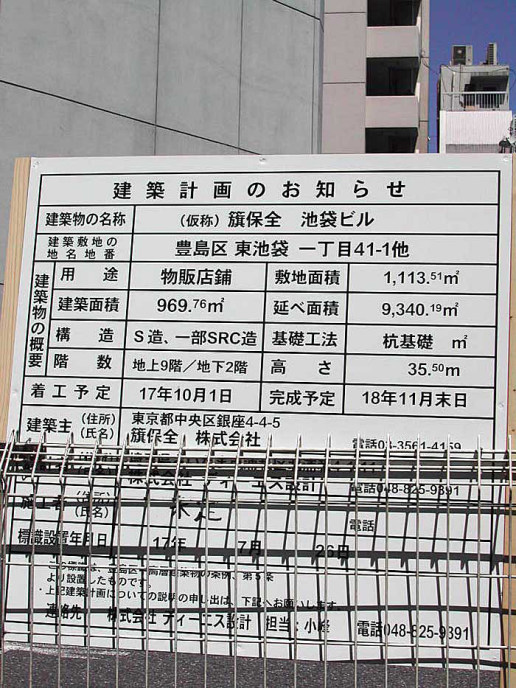 建築計画のお知らせ
建築物の名称 (仮称) 籏保全 池袋ビル
建築敷地の地名地番 豊島区 東池袋 一丁目41-1他
建築物の概要
用途 物販店舗 敷地面積 1,113.51㎡
建築面積 969.76㎡ 延べ面積 9,340.19㎡
構造 S造、一部SRC造 基礎工法 杭基礎 ㎡
階数 地上9階／地下2階 高さ 35.50m
着工予定 17年10月1日 完成予定 18年11月末日
建築主 (住所) 東京都中央区銀座4-4-5
(氏名) 籏保全 株式会社 電話03-3561-4159
株式会社 ティーエス設計 電話048-825-9391
施工者 (住所)
(氏名) 未定 電話
標識設置年月日 17年 7月 26日
より設置したものです。
・上記建築計画についての説明の申し出は、下記へお願いします。
連絡先 株式会社 ティーエス設計 担当：小峰 電話048-825-9391